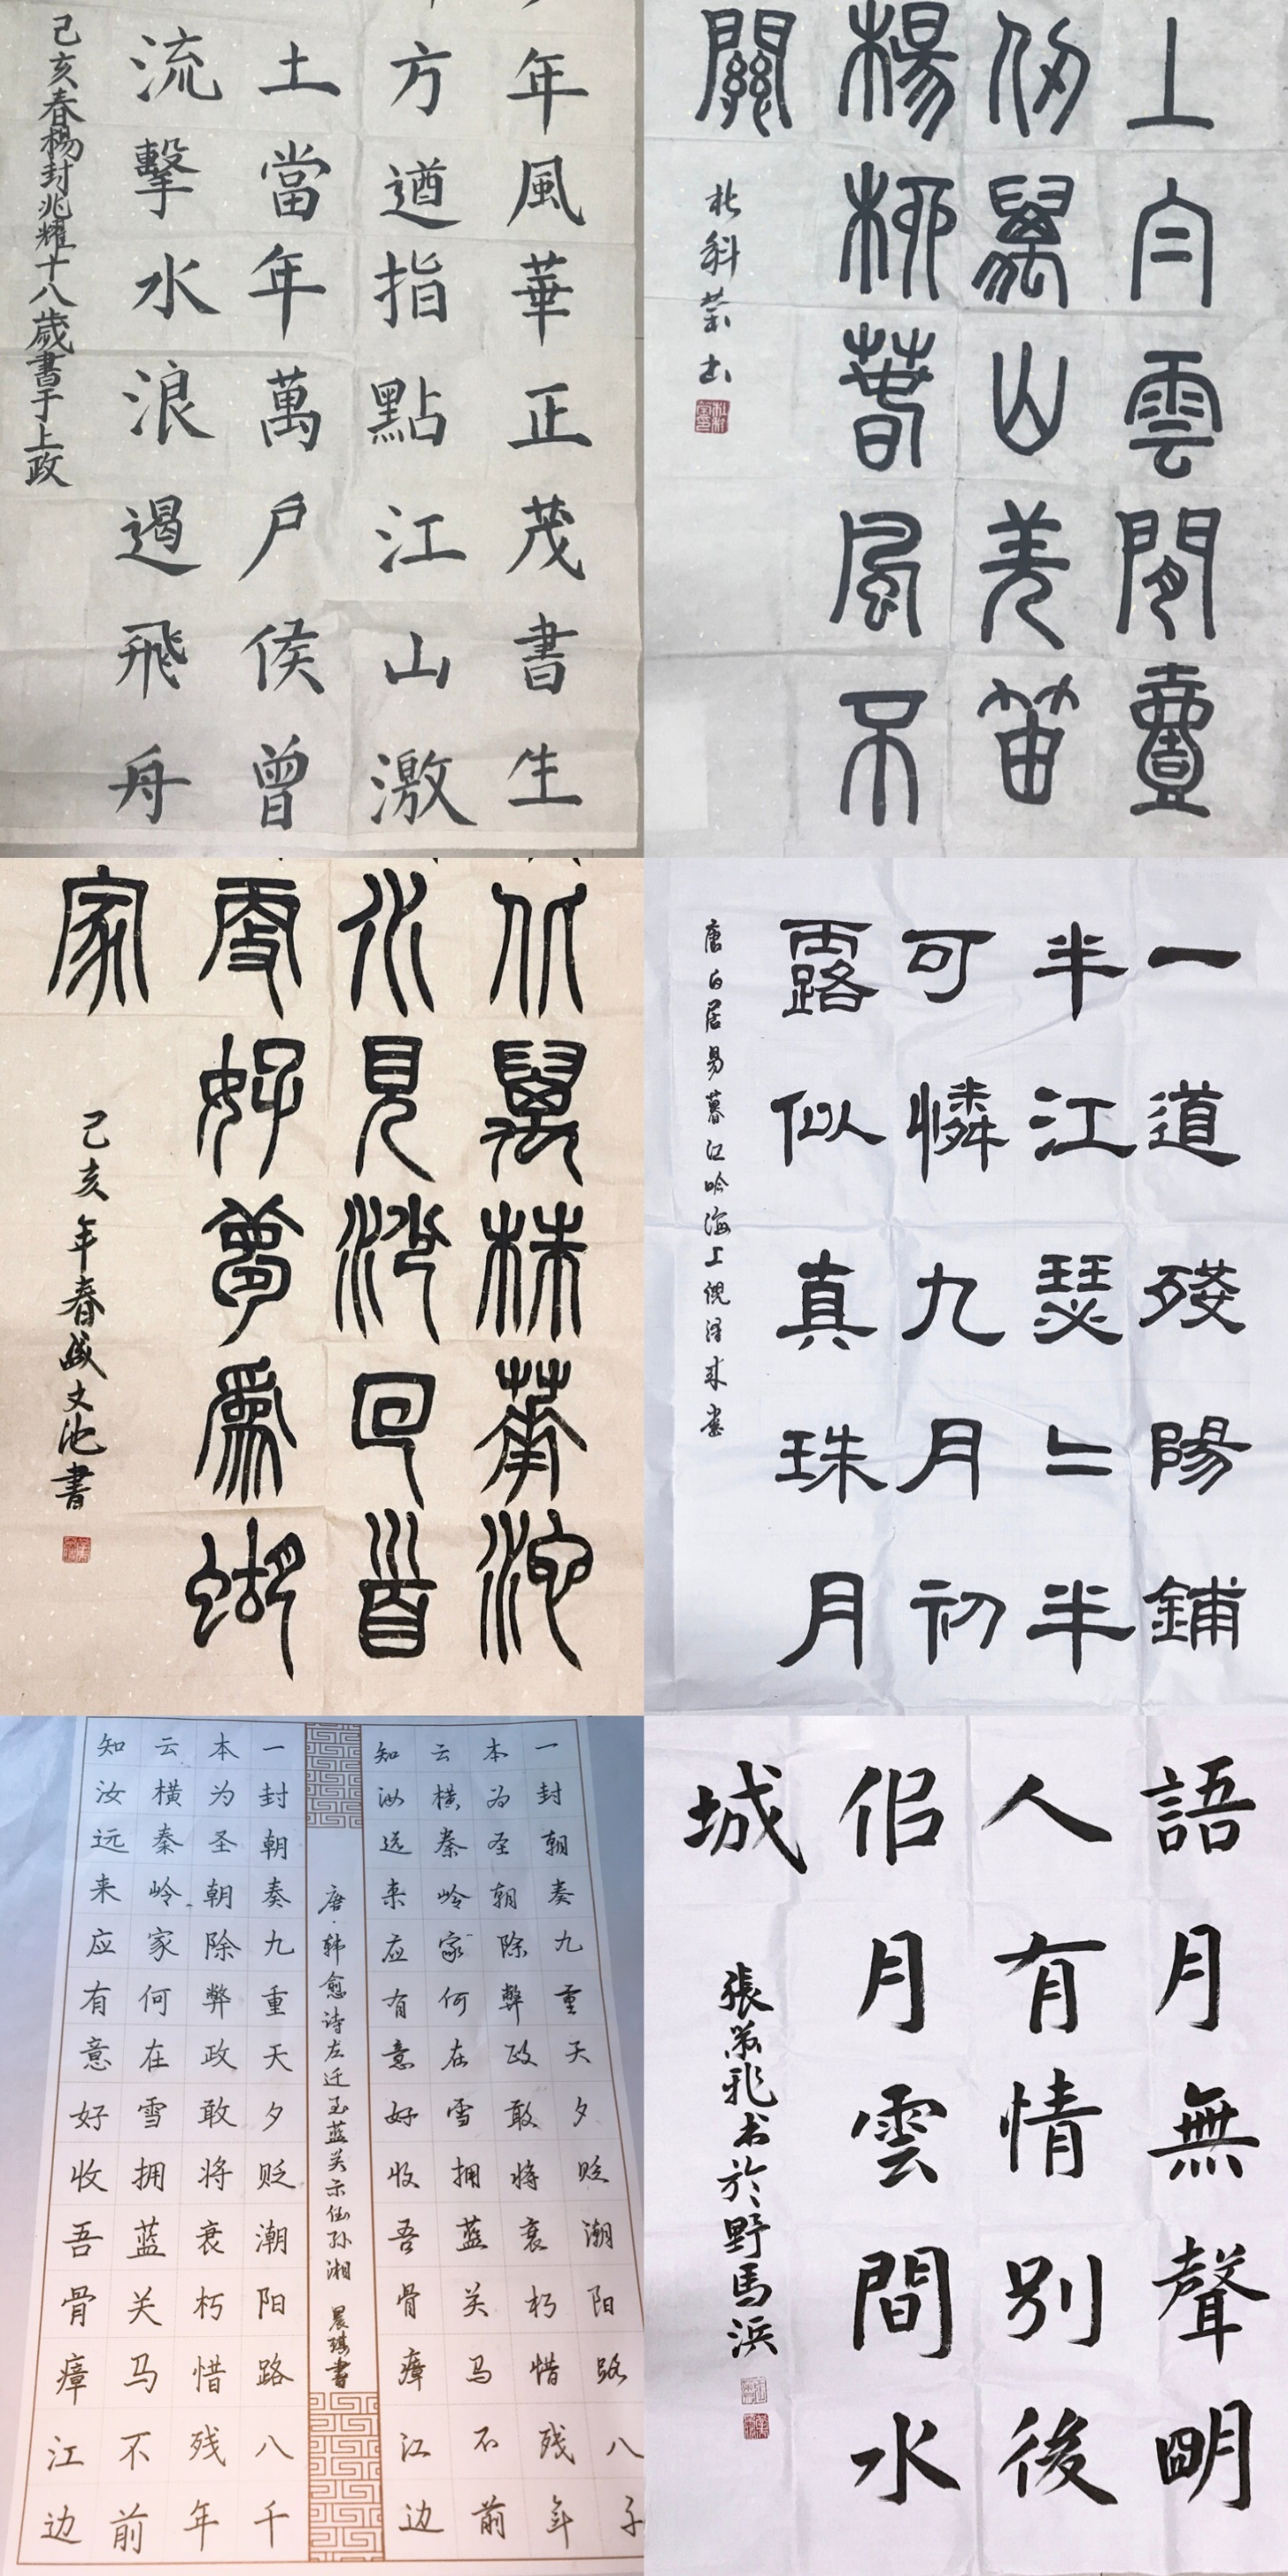 年風華正茂書生
方遒指點江山激
土當年萬戶侯曾
流擊水浪遏飛舟
己亥春楊封兆耀十八歲書于上政
上白雲間壹
仞萬山羌笛
楊柳春風不
關
杜科榮書
竹萬株池
水見回首
處好夢為
家
己亥年春盛文池書
一道殘陽鋪
半江瑟〻半
可憐九月初
露似真珠月
唐白居易暮江吟海上倪書
一封朝奏九重天夕贬潮阳路八千
本为圣朝除弊政敢将衰朽惜残年
云横秦岭家何在雪拥蓝关马不前
知汝远来应有意好收吾骨瘴江边
唐·韩愈诗左迁至蓝关示侄孙湘 晨琪書
一封朝奏九重天夕贬潮阳路八千
本为圣朝除弊政敢将衰朽惜残年
云横秦岭家何在雪拥蓝关马不前
知汝远来应有意好收吾骨瘴江边
語月無聲明
人有情別後
佀月雲間水
城
張书於野馬浜